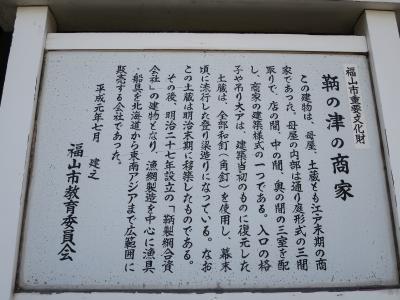 福山市重要文化財
鞆の津の商家
この建物は、母屋、土蔵とも江戸末期の商
家であった。母屋の内部は通り庭形式の三間
取りで、店の間、中の間、奥の間の三室を配
し、商家の建築様式の一つである。入口の格
子や吊り大戸は、建築当初のものに復元した
土蔵は、全部和釘(角釘)を使用し、幕末
頃に流行した登り梁造りになっている。なお
この土蔵は明治末期に移築したものである。
その後、明治二十七年設立の「鞆製網合資
会社」の建物となり、漁網製造を中心に漁具
・船具を北海道から東南アジアまで広範囲に
販売する会社であった。
平成元年七月 建之
福山市教育委員会